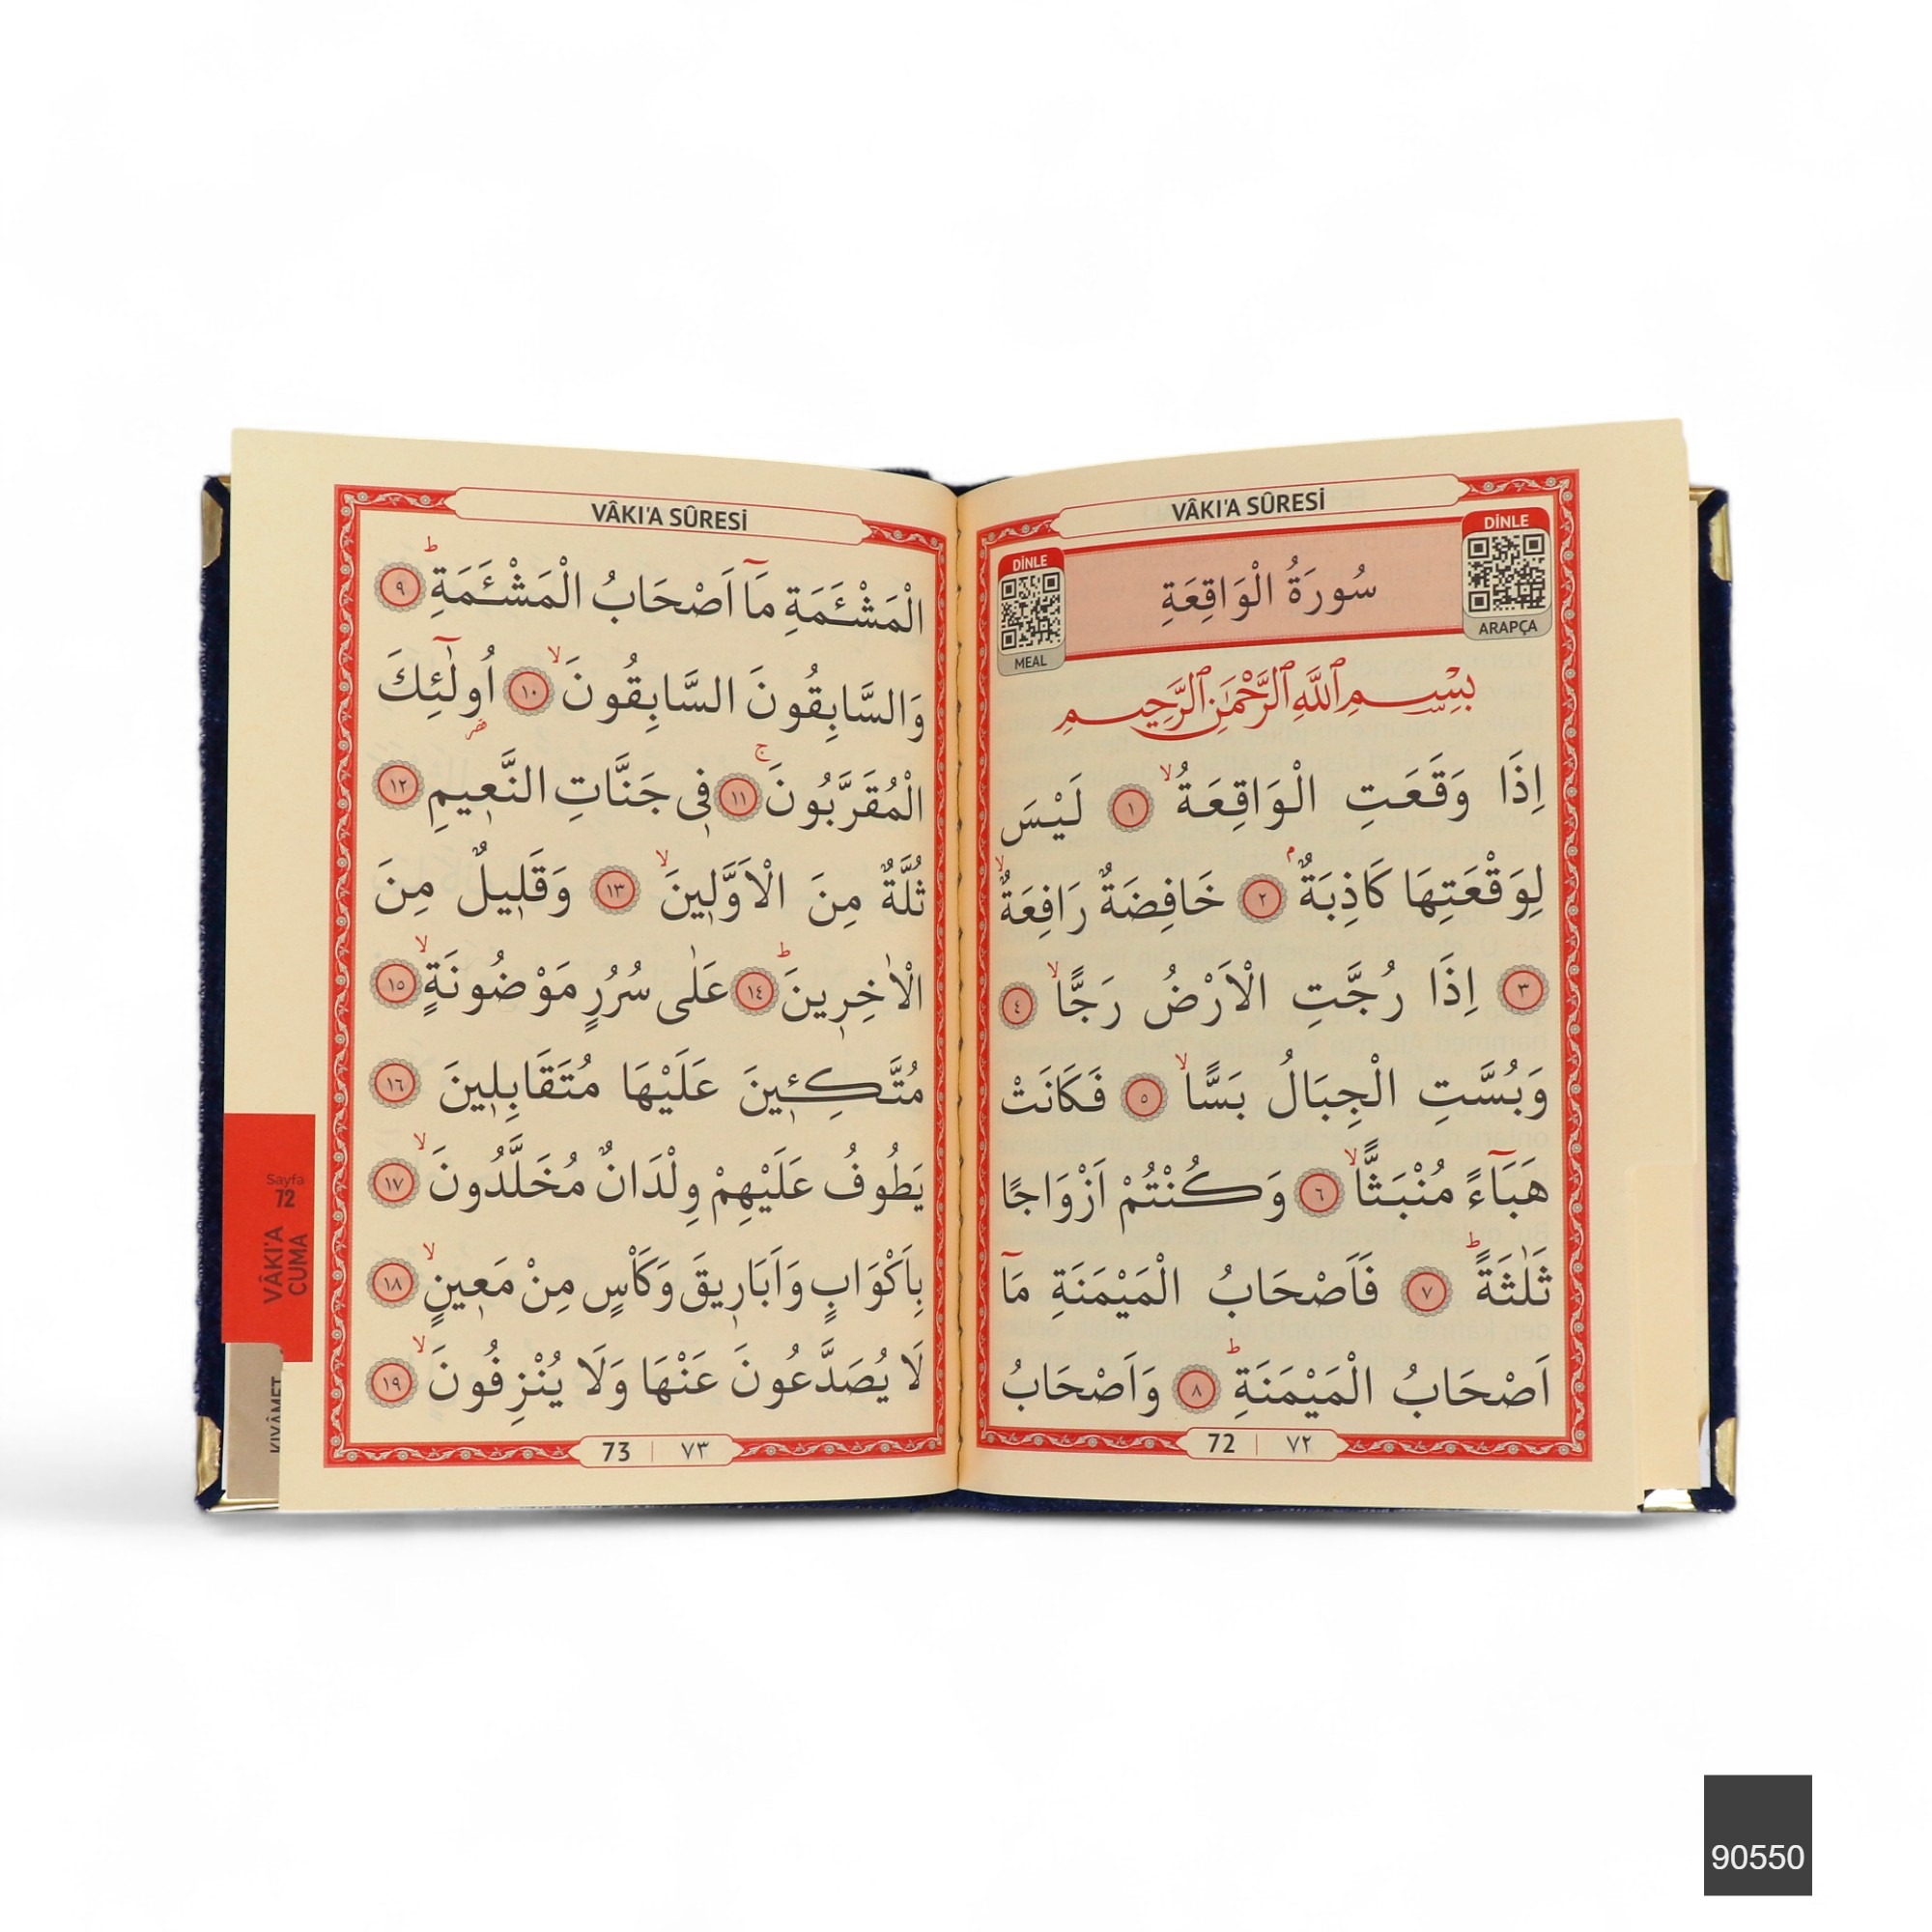 VÂKI'A SÛRESİ
DİNLE
ARAPÇA
سُورَةُ الْوَاقِعَةِ
DİNLE
MEAL
بِسْمِ ٱللَّهِ ٱلرَّحْمَٰنِ ٱلرَّحِيمِ
اِذَا وَقَعَتِ الْوَاقِعَةُۙ ١ لَيْسَ
لِوَقْعَتِهَا كَاذِبَةٌۢ ٢ خَافِضَةٌ رَافِعَةٌۙ
٣ اِذَا رُجَّتِ الْاَرْضُ رَجًّاۙ ٤
وَبُسَّتِ الْجِبَالُ بَسًّاۙ ٥ فَكَانَتْ
هَبَٓاءً مُنْبَثًّاۙ ٦ وَكُنْتُمْ اَزْوَاجًا
ثَلٰثَةًۜ ٧ فَاَصْحَابُ الْمَيْمَنَةِ مَٓا
اَصْحَابُ الْمَيْمَنَةِۜ ٨ وَاَصْحَابُ
72 | ٧٢
VÂKI'A SÛRESİ
الْمَشْـَٔمَةِ مَٓا اَصْحَابُ الْمَشْـَٔمَةِۜ ٩
وَالسَّابِقُونَ السَّابِقُونَۙ ١٠ اُولٰٓئِكَ
الْمُقَرَّبُونَۚ ١١ ف۪ي جَنَّاتِ النَّع۪يمِ ١٢
ثُلَّةٌ مِنَ الْاَوَّل۪ينَۙ ١٣ وَقَل۪يلٌ مِنَ
الْاٰخِر۪ينَۜ ١٤ عَلٰى سُرُرٍ مَوْضُونَةٍۙ ١٥
مُتَّكِـ۪ٔينَ عَلَيْهَا مُتَقَابِل۪ينَ ١٦
يَطُوفُ عَلَيْهِمْ وِلْدَانٌ مُخَلَّدُونَۙ ١٧
بِاَكْوَابٍ وَاَبَار۪يقَ وَكَاْسٍ مِنْ مَع۪ينٍۙ ١٨
لَا يُصَدَّعُونَ عَنْهَا وَلَا يُنْزِفُونَۙ ١٩
73 | ٧٣
Sayfa
72
VÂKI'A
CUMA
KIYÂMET
90550